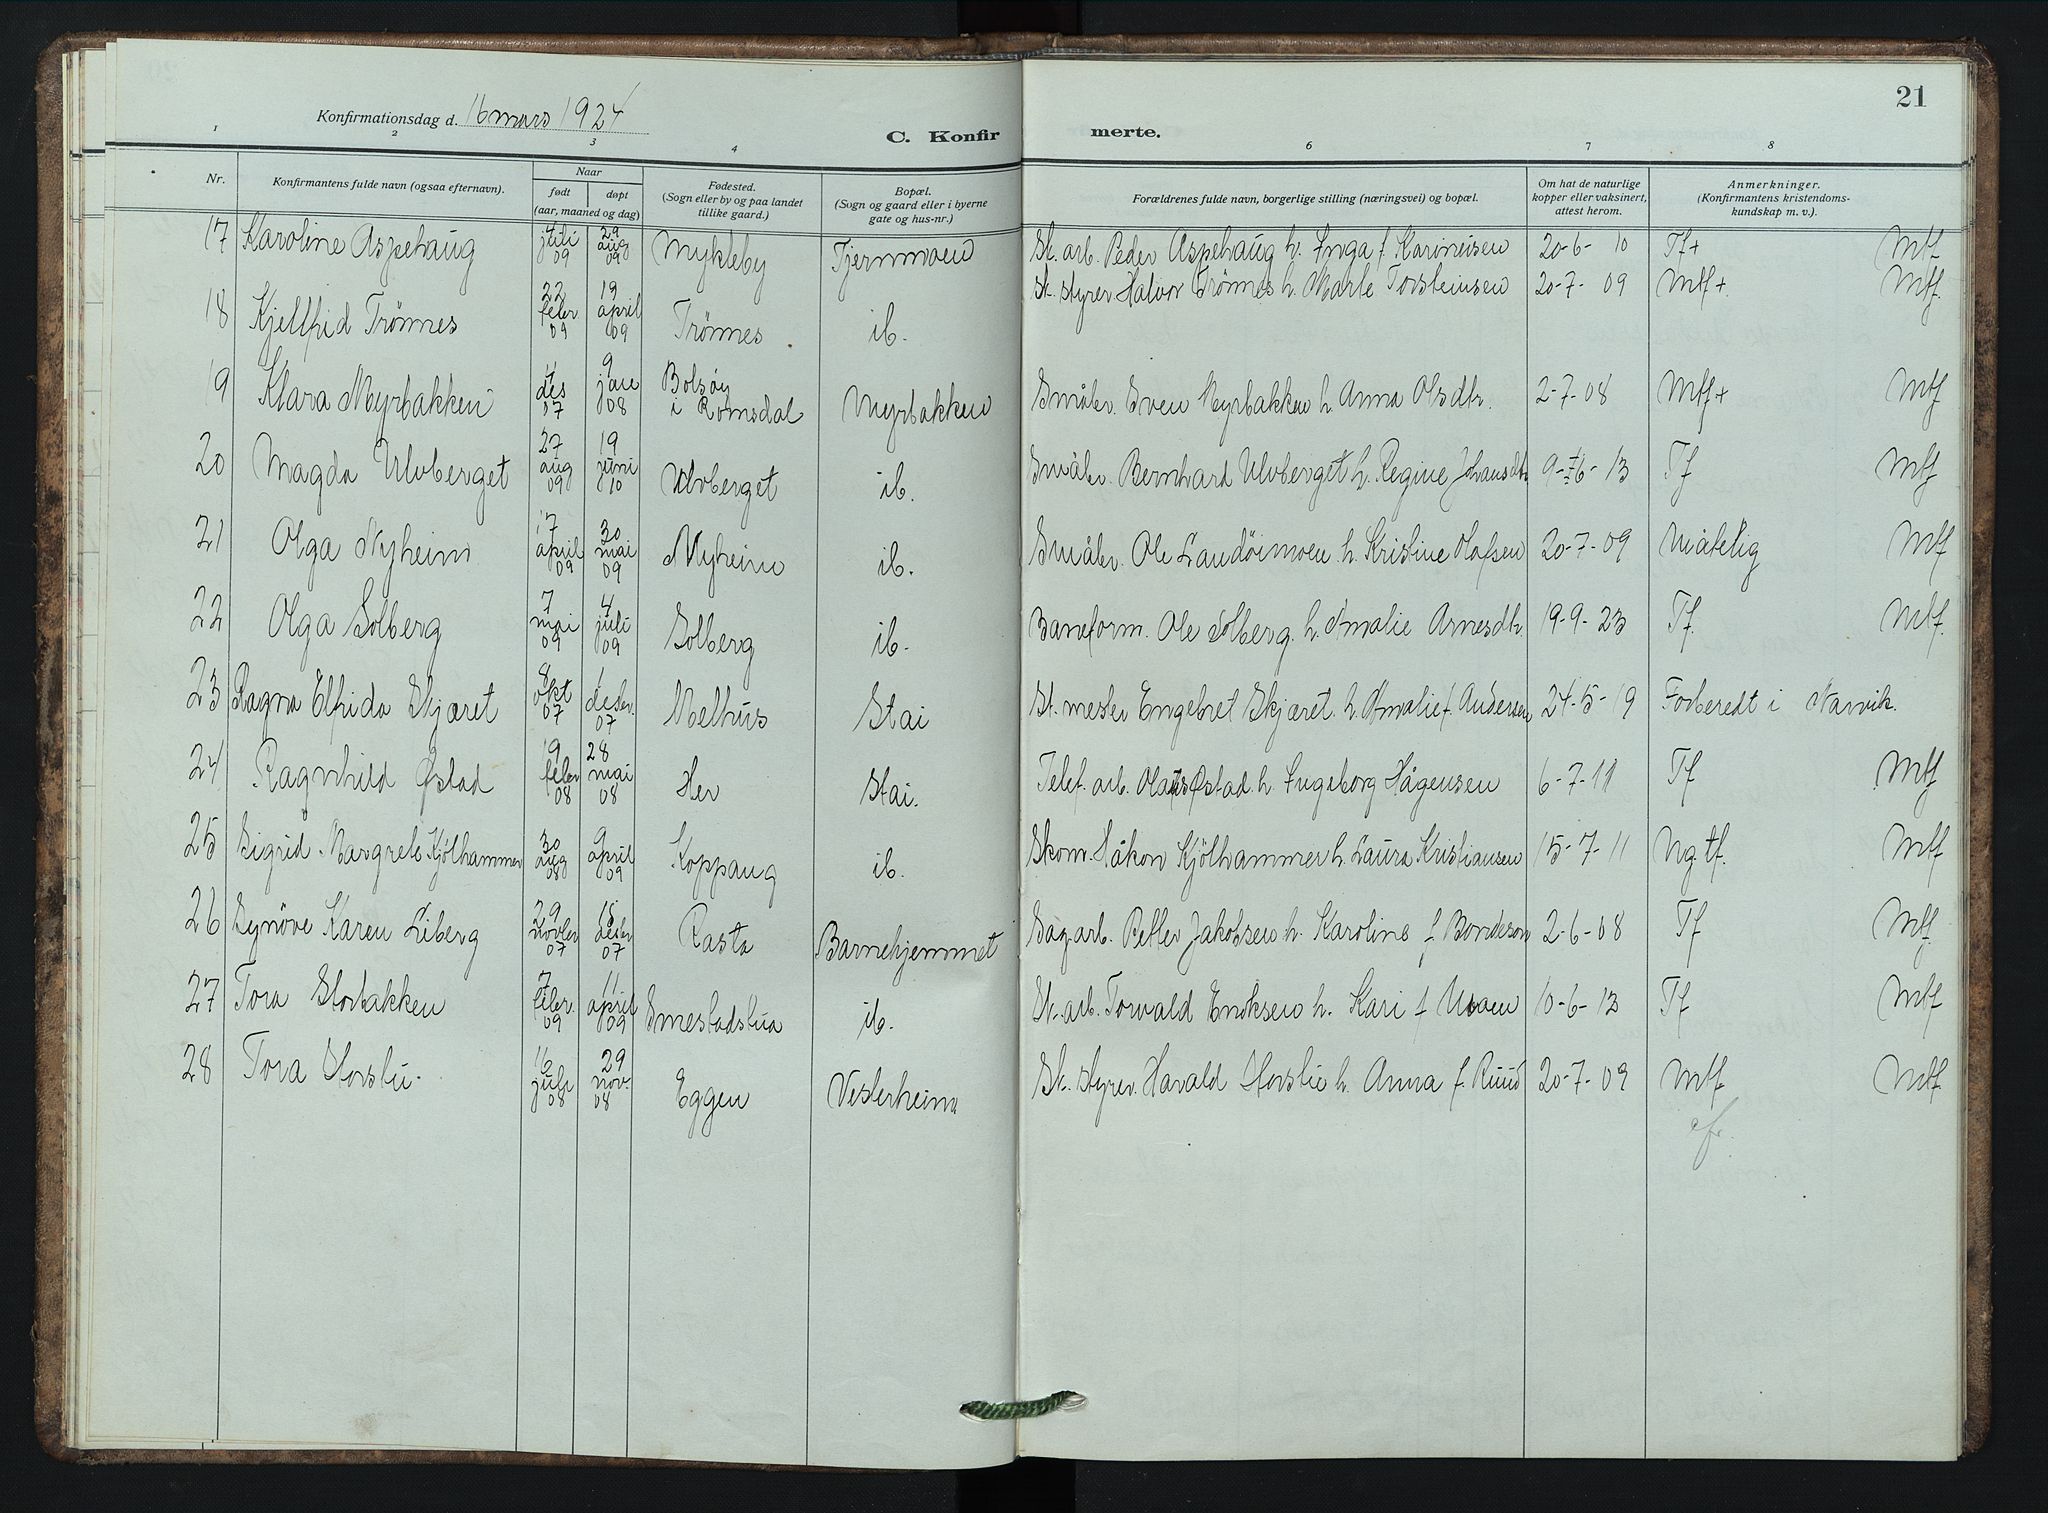 21
Konfirmationsdag d. 16 mars 1924
C. Konfirmerte.
1 2 3 4 6 7 8
Nr. Konfirmantens fulde navn (ogsaa efternavn). Naar født døpt (aar, maaned og dag) Fødested. (Sogn eller by og paa landet tillike gaard.) Bopæl. (Sogn og gaard eller i byerne gate og hus-nr.) Forældrenes fulde navn, borgerlige stilling (næringsvei) og bopæl. Om hat de naturlige kopper eller vaksinert, attest herom. Anmerkninger. (Konfirmantens kristendomskundskap m. v.).
17 Karoline Aspehaug juli 09 29 aug 09 Mykleby Tjernmoen Sk. arb. Peder Aspehaug h. Inga f Karoneisen 20-6-10 Tf+ Mtf
18 Kjellfrid Trönnes 22 febr 09 19 april 09 Trönnes ib. St. styrer Halvor Trönnes h. Marte Torsteinsen 20-7-09 Mtf+ Mtf.
19 Klara Myrbakken 11 des 07 9 jan 08 Bolsøy i Romsdal Myrbakken Småbr. Even Myrbakken h. Anna Olsdtr. 2-7-08 Mtf+ Mtf
20 Magda Ulvberget 27 aug 09 19 juni 10 Ulvberget ib. Småbr. Bernhard Ulvberget h. Regine Johansdtr 9-6-13 Tf Mtf
21 Olga Nyheim 17 april 09 30 mai 09 Nyheim ib. Småbr. Ole Landöimoen h. Kristine Olafsen 20-7-09 Måtelig Mtf
22 Olga Solberg 7 mai 09 4 juli 09 Solberg ib. Baneform. Ole Solberg h. Amalie Arnesdtr. 19-9-23 Tf. Mtf.
23 Ragna Elfrida Skjæret 8 okt 07 1 desbr. 07 Melhus Stai St. mester Engebret Skjæret h. Amalie f. Andersen 24-5-19 Forberedt i Narvik.
24 Ragnhild Østad 19 febr 08 28 mai 08 Her Stai. Telef. arb. Olaus Østad h. Ingeborg Hågensen 6-7-11 Tf Mtf
25 Sigrid Margrete Kjölhammer 30 aug 08 9 april 09 Koppang ib. Skom. Håkon Kjölhammer h. Laura Kristiansen 15-7-11 Ng tf. Mtf
26 Synöve Karen Liberg 29 novbr 07 15 desbr 07 Rasta Barnehjemmet Sagarb. Petter Jakobsen h. Karoline f Bondeson 2-6-08 Tf Mtf
27 Tora Storbakken 7 febr. 09 11 april 09 Smestadstua ib. Sk. arb. Torvald Eriksen h. Kari f Moen 10-6-13 Tf Mtf
28 Tora Storsti. 16 juli 08 29 nov. 08 Eggen Vesterheim Sk. styrer Harald Storstie h. Anna f. Ruud 20-7-09 Mtf Mtf
cfr.